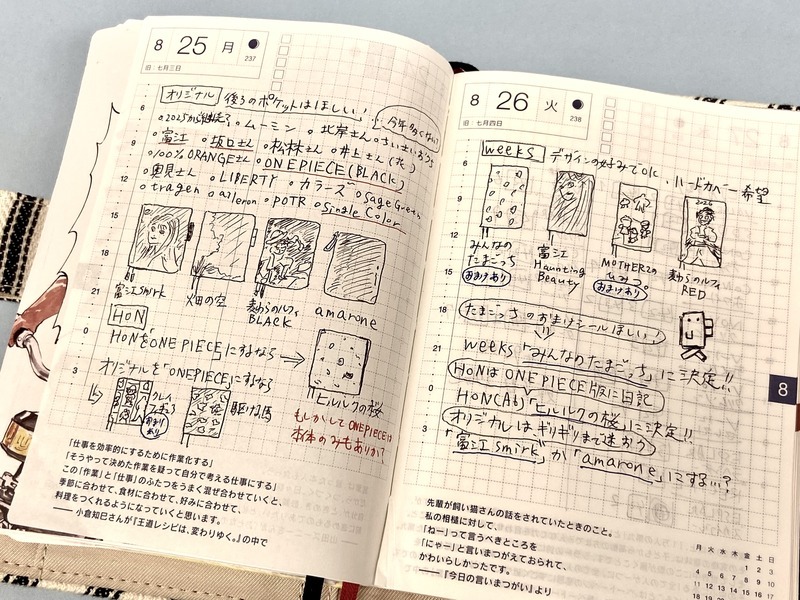 8 25 月
237
旧: 七月三日
オリジナル 後ろのポケットはほしい!
今年多くない?
・2025から継続了 ・ムーミン ・北岸さん ・ちいさいおうち
・富江 ・坂口さん ・松林さん ・井上さん(花)
・100%ORANGEさん ・ONE PIECE (BLACK)
・奥見さん ・LIBERTY ・カラーズ ・Sage Green
・tragen ・arlemon ・POTR ・Single Color
6
9
12
15
18
21
0
3
富江smirk
畑の空
麦わらのルフィ
BLACK
amarone
HON
HONを「ONE PIECE」にするなら→
オリジナルを「ONEPIECE」にするなら
クレイ
おまけ
あり
駆ける馬
ヒルルクの桜
もしかしてONEPIECEは
本体のみもありか?
「仕事を効率的にするために作業化する」
「そうやって決めた作業を疑って自分で考える仕事にする」
この「作業」と「仕事」のふたつをうまく混ぜ合わせていくと、
季節に合わせて、食材に合わせて、好みに合わせて、
料理をつくれるようになっていくと思います。
── 小倉知巳さんが『王道レシピは、変わりゆく。』の中で
8 26 火
238
旧: 七月四日
weeks デザインの好みでOK、ハードカバー希望
6
9
12
15
18
21
0
3
みんなの
たまごっち
おまけあり
富江
Haunting
Beauty
MOTHER2の
ひみつ。
おまけあり
2026
麦わらのルフィ
RED
たまごっちのおまけシールほしい!
weeks「みんなのたまごっち」に決定!!
HONはONE PIECE版に日記
HON(A6)「ヒルルクの桜」に決定!!
オリジナルはギリギリまで迷おう
「富江smirk」か「amarone」にする…?
8
先輩が飼い猫さんの話をされていたときのこと。
私の相槌に対して、
「ねー」って言うべきところを
「にゃー」と言いまつがえておられて、
かわいらしかったです。
── 『今日の言いまつがい』より
月 火 水 木 金 土 日
1 2 3
4 5 6 7 8 9 10
11 12 13 14 15 16 17
18 19 20